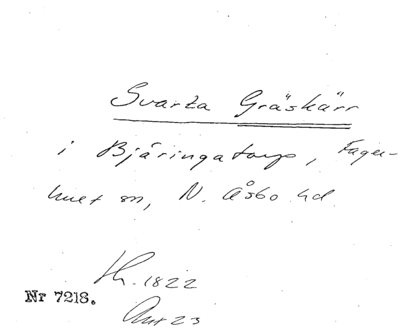 Svarta Gräskärr
i Bjäringatorp, Fager-
hult sn, N. Åsbo hd.
Nr 7218.
1822
23